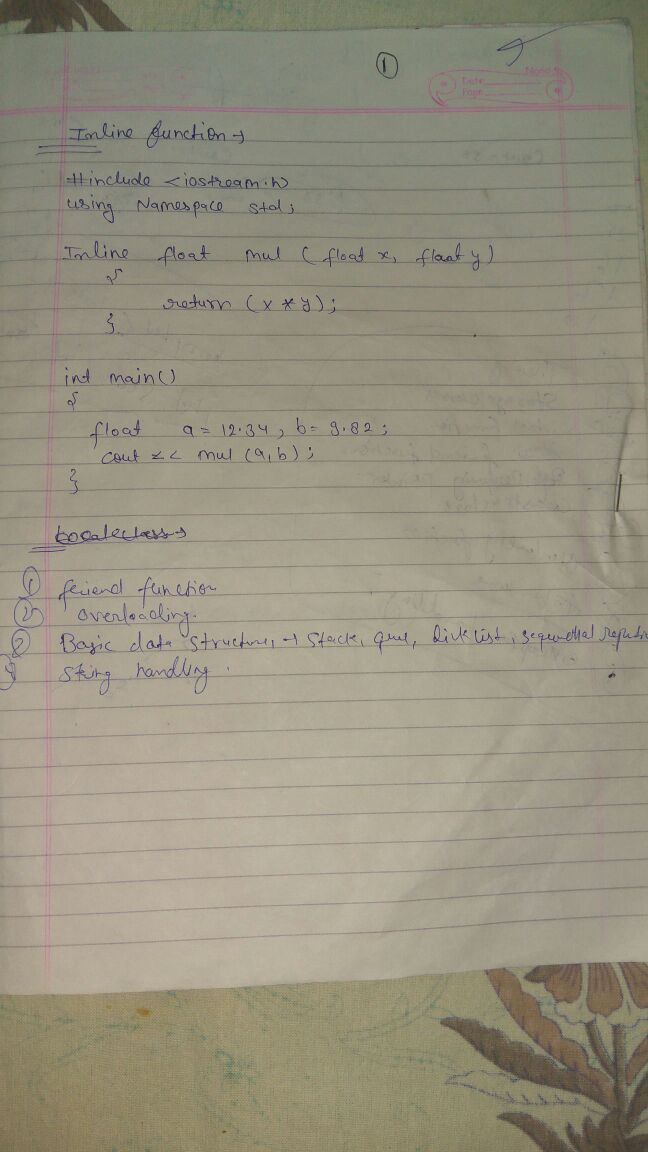 1
Date
Page
Inline function →
#include <iostream.h>
using Namespace std;
Inline float mul (float x, float y)
{
return (x * y);
}
int main()
{
float a = 12.34, b = 9.82;
cout << mul (a, b);
}
① friend function
② overloading.
② Basic data structure, → stack, que, Lick list, sequential
string handling.